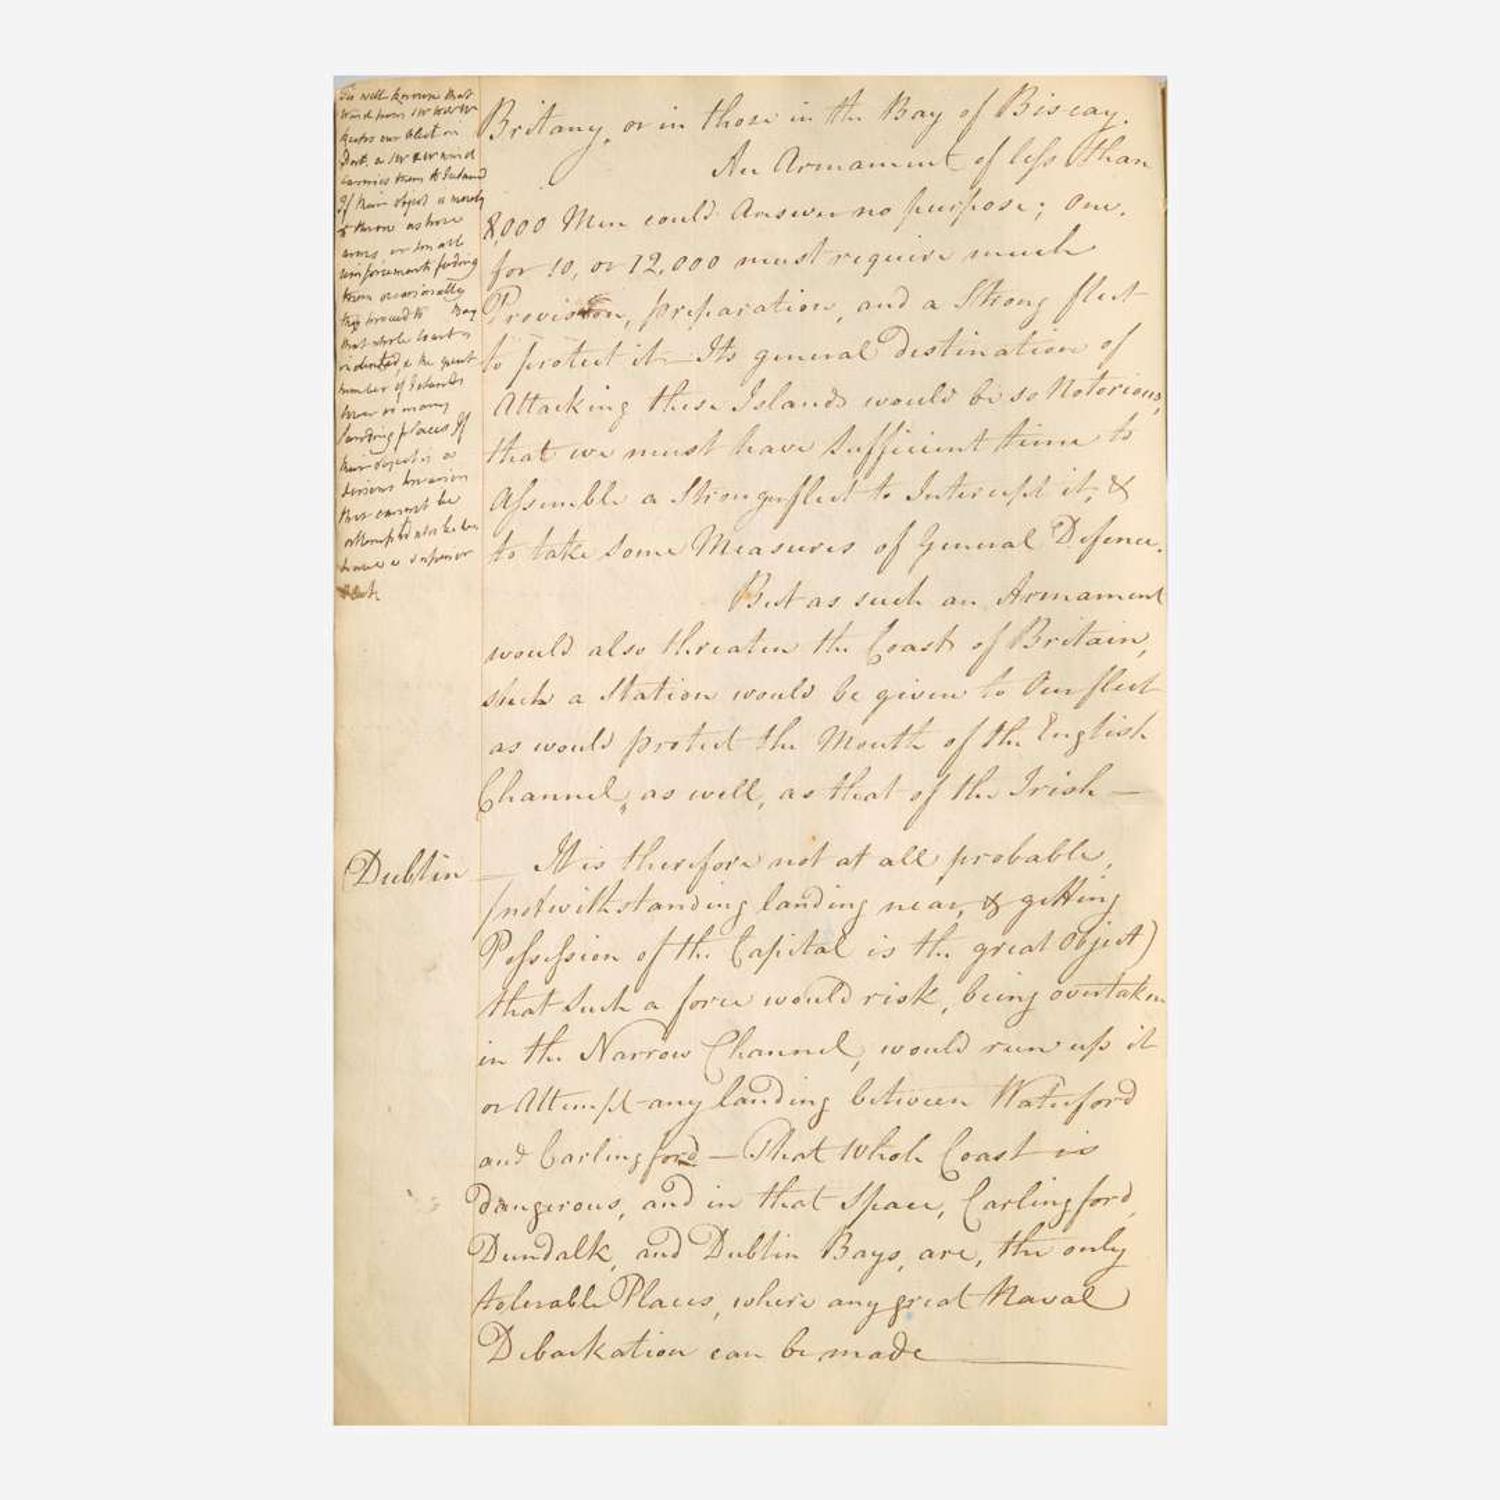 Britany, or in those in the Bay of Biscay.
An Armament of less than
8,000 Men could Answer no purpose; One,
for 10, or 12,000 must require much
Provision, preparation, and a Strong fleet
to protect it — Its general destination of
Attacking these Islands would be so Notorious,
that we must have sufficient time to
Assemble a Stronger fleet to Intercept it, &
to take some Measures of General Defence.
But as such an Armament
would also threaten the Coast of Britain,
such a Station would be given to Our fleet
as would protect the Mouth of the English
Channel, as well, as that of the Irish —
Dublin — It is therefore not at all probable,
(notwithstanding landing near, & getting
Possession of the Capital is the great Object)
that such a force would risk, being overtaken
in the Narrow Channel, would run up it
or Attempt any landing between Waterford
and Carlingford — That whole Coast is
dangerous, and in that Space, Carlingford,
Dundalk, and Dublin Bays, are, the only
tolerable Places, where any great Naval
Debarkation can be made
Tis well known that
wind from
keeps our fleet in
Port. a SW wind
carries them to Ireland
If their object is merely
to throw ashore
arms, or small
reinforcements feeding
them occasionally
they proceed to Bay
that whole Coast is
indented, & the great
number of Islands
have so many
landing places If
their object is a
serious Invasion
that cannot be
attempted
have a superior
fleet